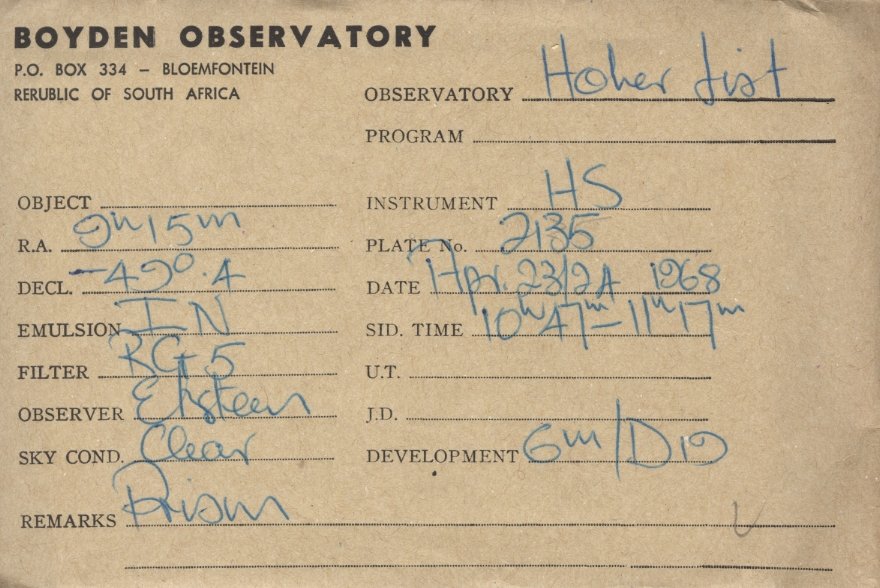 BOYDEN OBSERVATORY
P.O. BOX 334 – BLOEMFONTEIN
RERUBLIC OF SOUTH AFRICA
OBSERVATORY Hoher List
PROGRAM
OBJECT
INSTRUMENT HS
R.A. 9h 15m
PLATE No. 2135
DECL. -49°.4
DATE Apr. 23/24 1968
EMULSION IN
SID. TIME 10h 47m – 11h 17m
FILTER RG 5
U.T.
OBSERVER Eksteen
J.D.
SKY COND. Clear
DEVELOPMENT 6m/D19
REMARKS Prism